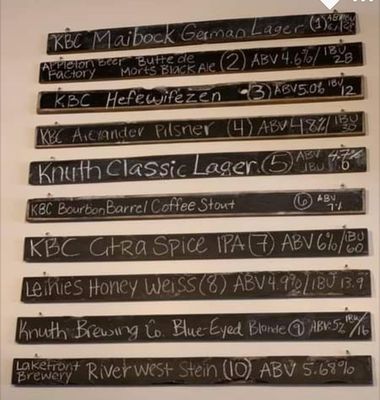 KBC Maibock German Lager (1) ABV IBU
Appleton Beer Factory Butte de Morts Black Ale (2) ABV 4.6%/IBU 28
KBC Hefewifezen (3) ABV 5.0% IBU/12
KBC Alexander Pilsner (4) ABV 4.8%/IBU 30
Knuth Classic Lager (5) ABV 4.7% IBU 0
KBC Bourbon Barrel Coffee Stout (6) ABV 7%
KBC Citra Spice IPA (7) ABV 6%/IBU 60
Leinies Honey Weiss (8) ABV 4.9%/IBU 13.9
Knuth Brewing Co. Blue-Eyed Blonde (9) ABV: 5% IBU/16
Lakefront Brewery Riverwest Stein (10) ABV 5.68%